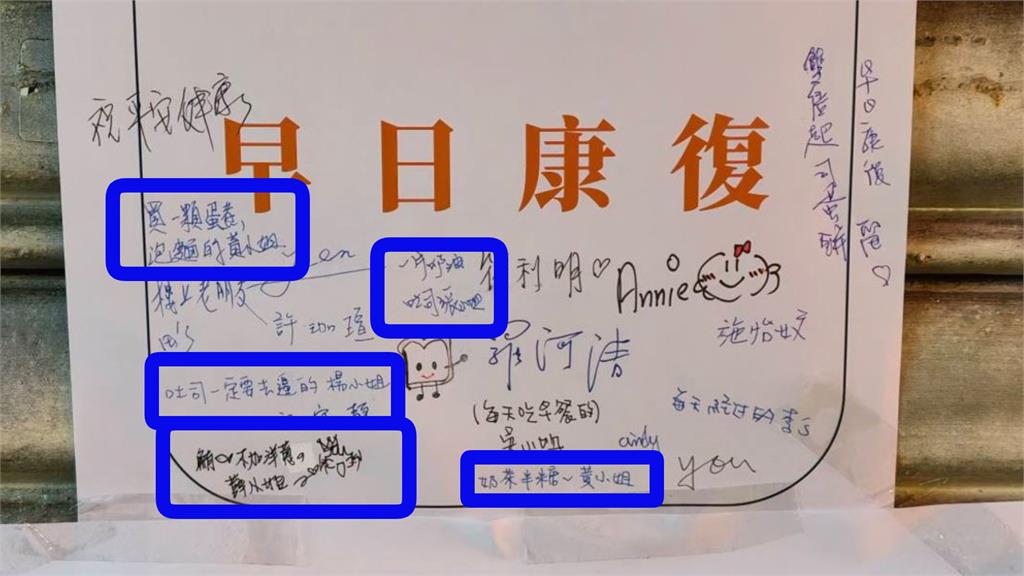 祝平安健康
早日康復
雙倍起司蛋餅
早日康復
買一顆蛋卷,
泡麵的黃小姐
樓上老朋友
一片奶油
吐司張小姐
利明♡
Annie
施怡妏
羅河清
吐司一定要去邊的 楊小姐
(每天吃早餐的)
吳小姐
cindy
每天經過的李's
不加洋蔥
薛小姐
奶茶半糖~黃小姐
you